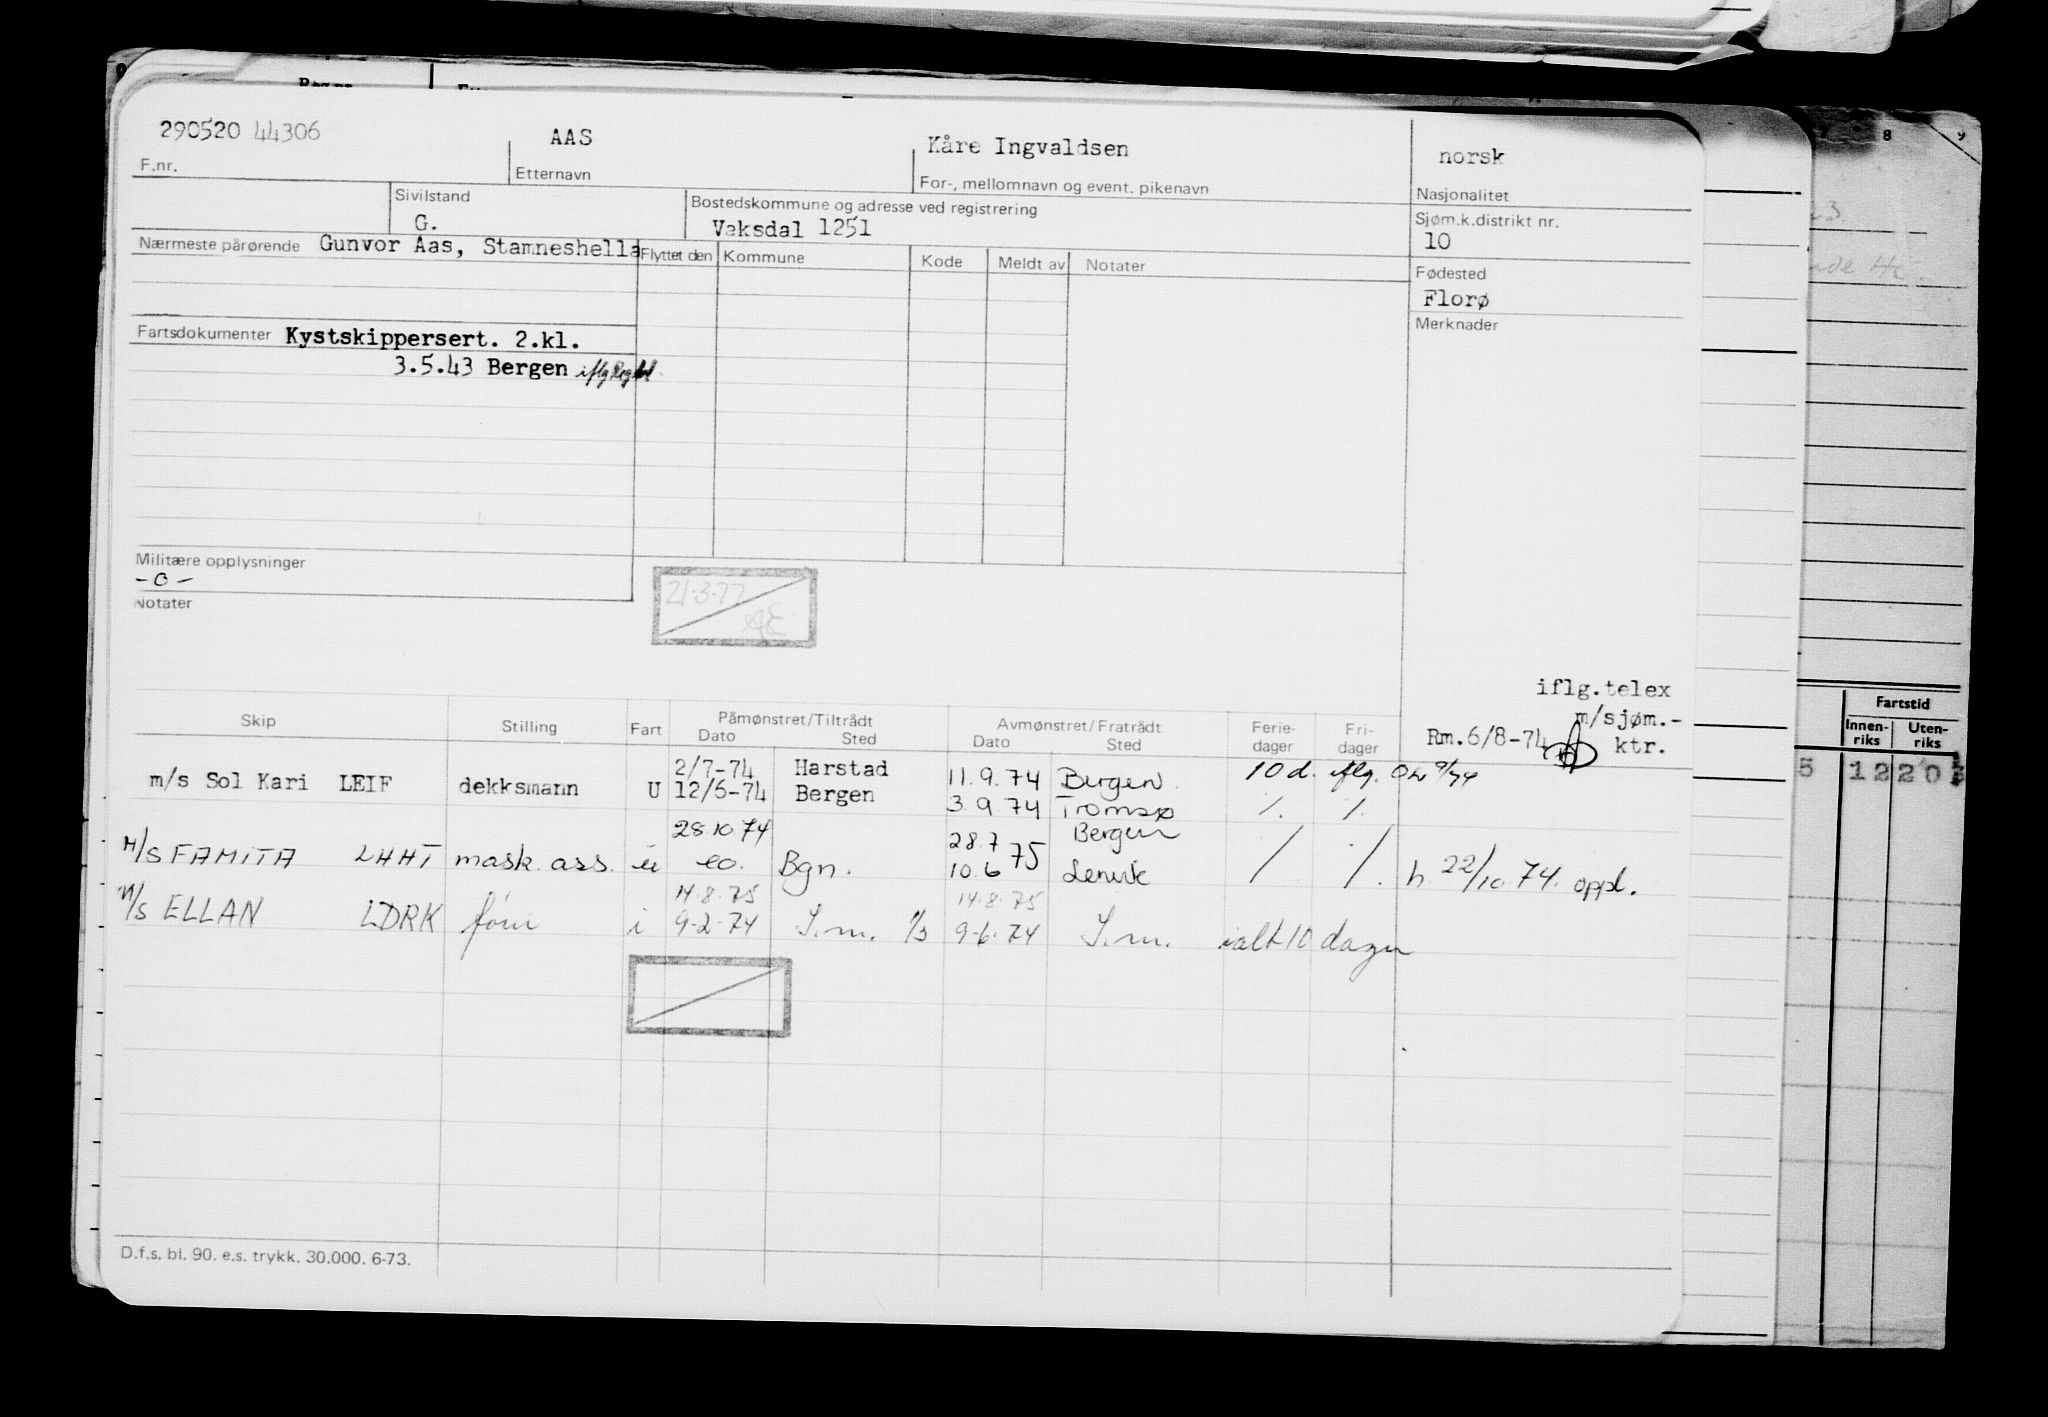 290520 44306
AAS
Kåre Ingvaldsen
norsk
F.nr.
Etternavn
For-, mellomnavn og event. pikenavn
Nasjonalitet
Sivilstand
G.
Bostedskommune og adresse ved registrering
Vaksdal 1251
Sjøm.k.distrikt nr.
10
Nærmeste pårørende Gunvor Aas, Stamneshella
Flyttet den
Kommune
Kode
Meldt av
Notater
Fødested
Florø
Merknader
Fartsdokumenter Kystskippersert. 2.kl.
3.5.43 Bergen
Militære opplysninger
-0-
Notater
21.3.77
AE
iflg.telex
m/sjøm.-
Rm.6/8-74 ktr.
Skip
Stilling
Fart
Påmønstret/Tiltrådt
Dato Sted
Avmønstret/Fratrådt
Dato Sted
Ferie-
dager
Fri-
dager
2/7-74 Harstad
m/s Sol Kari LEIF dekksmann U 12/6-74 Bergen
11.9.74 Bergen 10 d. iflg.
3.9.74 Tromsø
28.10.74 28.7 Bergen
M/S FAMITA LHHT mask. ass. u eo. Bgn. 10.6 75 Lerwick h 22/10.74. oppl.
14.8.75 14.8.75
M/S ELLAN LDRK i 9-2-74 S.m. 9-6-74 S.m. ialt 10 dager
D.f.s. bl. 90. e.s. trykk. 30.000. 6-73.
8 9
Fartstid
Innen-
riks
Uten-
riks
5 12 20